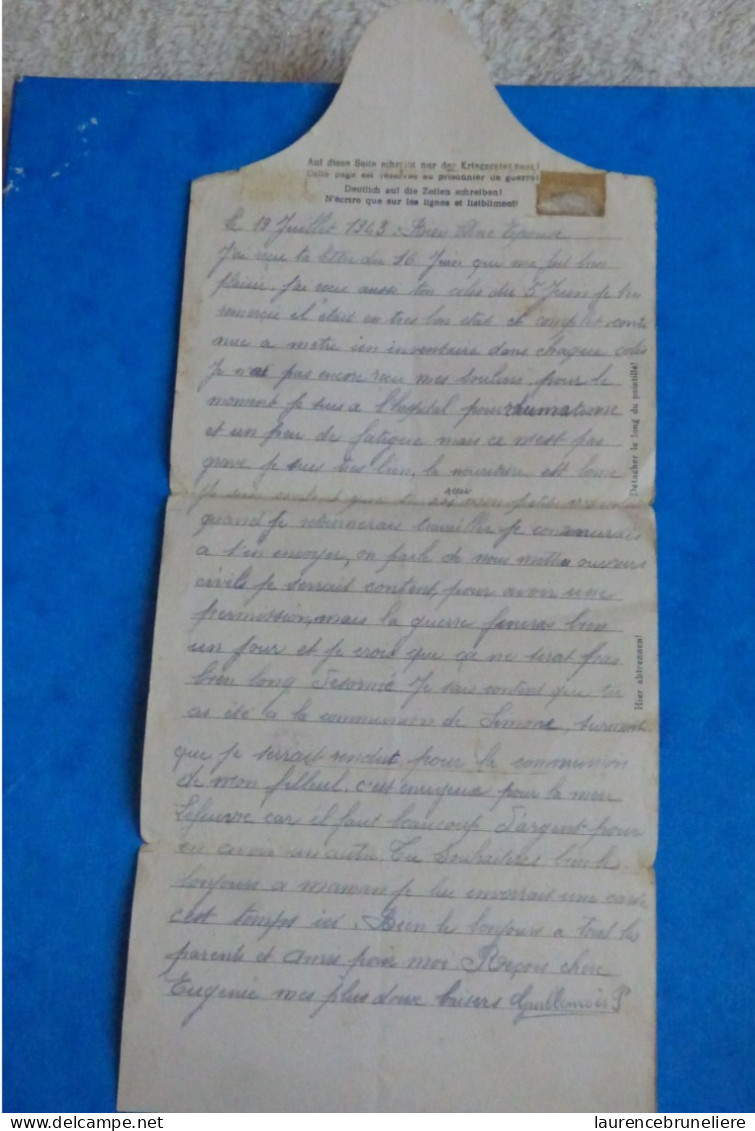 Auf diese Seite schreibt nur der Kriegsgefangene!
Cette page est réservée au prisonnier de guerre!
Deutlich auf die Zeilen schreiben!
N'écrire que sur les lignes et lisiblement!
le 19 Juillet 1943 Bien Epouse
J'ai recu ta lettre du 16 Juin que me fait bien
plaisir. J'ai recu aussi ton colis du 5 Juin je t'en
remercie il était en tres bon etat et complet conti
nue a metre ien inventaire dans chaque colis
Je n'ai pas encore recu mes souliers. pour le
moment je suis a l'hopital pour rhumatisme
et un peu de fatigue mais ce n'est pas
grave je suis tres bien, la nouriture est bone
Je suis content que tu as mon petit
quand je retournerais travailler je continurais
a t'en envoyer, on parle de nous mettre ouvriers
civils je serrait content, pour avoir une
permission, mais la guerre finiras bien
un jour et je crois que ça ne serat pas
bien long desormé Je suis content que tu
as été a la communion de Simone,
que je serrait rendut pour la communion
de mon filleul. c'est pour la mere
Lefeuvre car il faut beaucoup d'argent pour
en avoir un autre Tu souhaiteras
toujours a maman je lui enverrait une carte
c'est temps ici. Bien le bonjours a tout les
parents et amis pour moi Reçois chere
Eugenie mes plus doux baisers Guillemois P
Detacher le long du pointillé!
Hier abtrennen!
laurencebruneliere